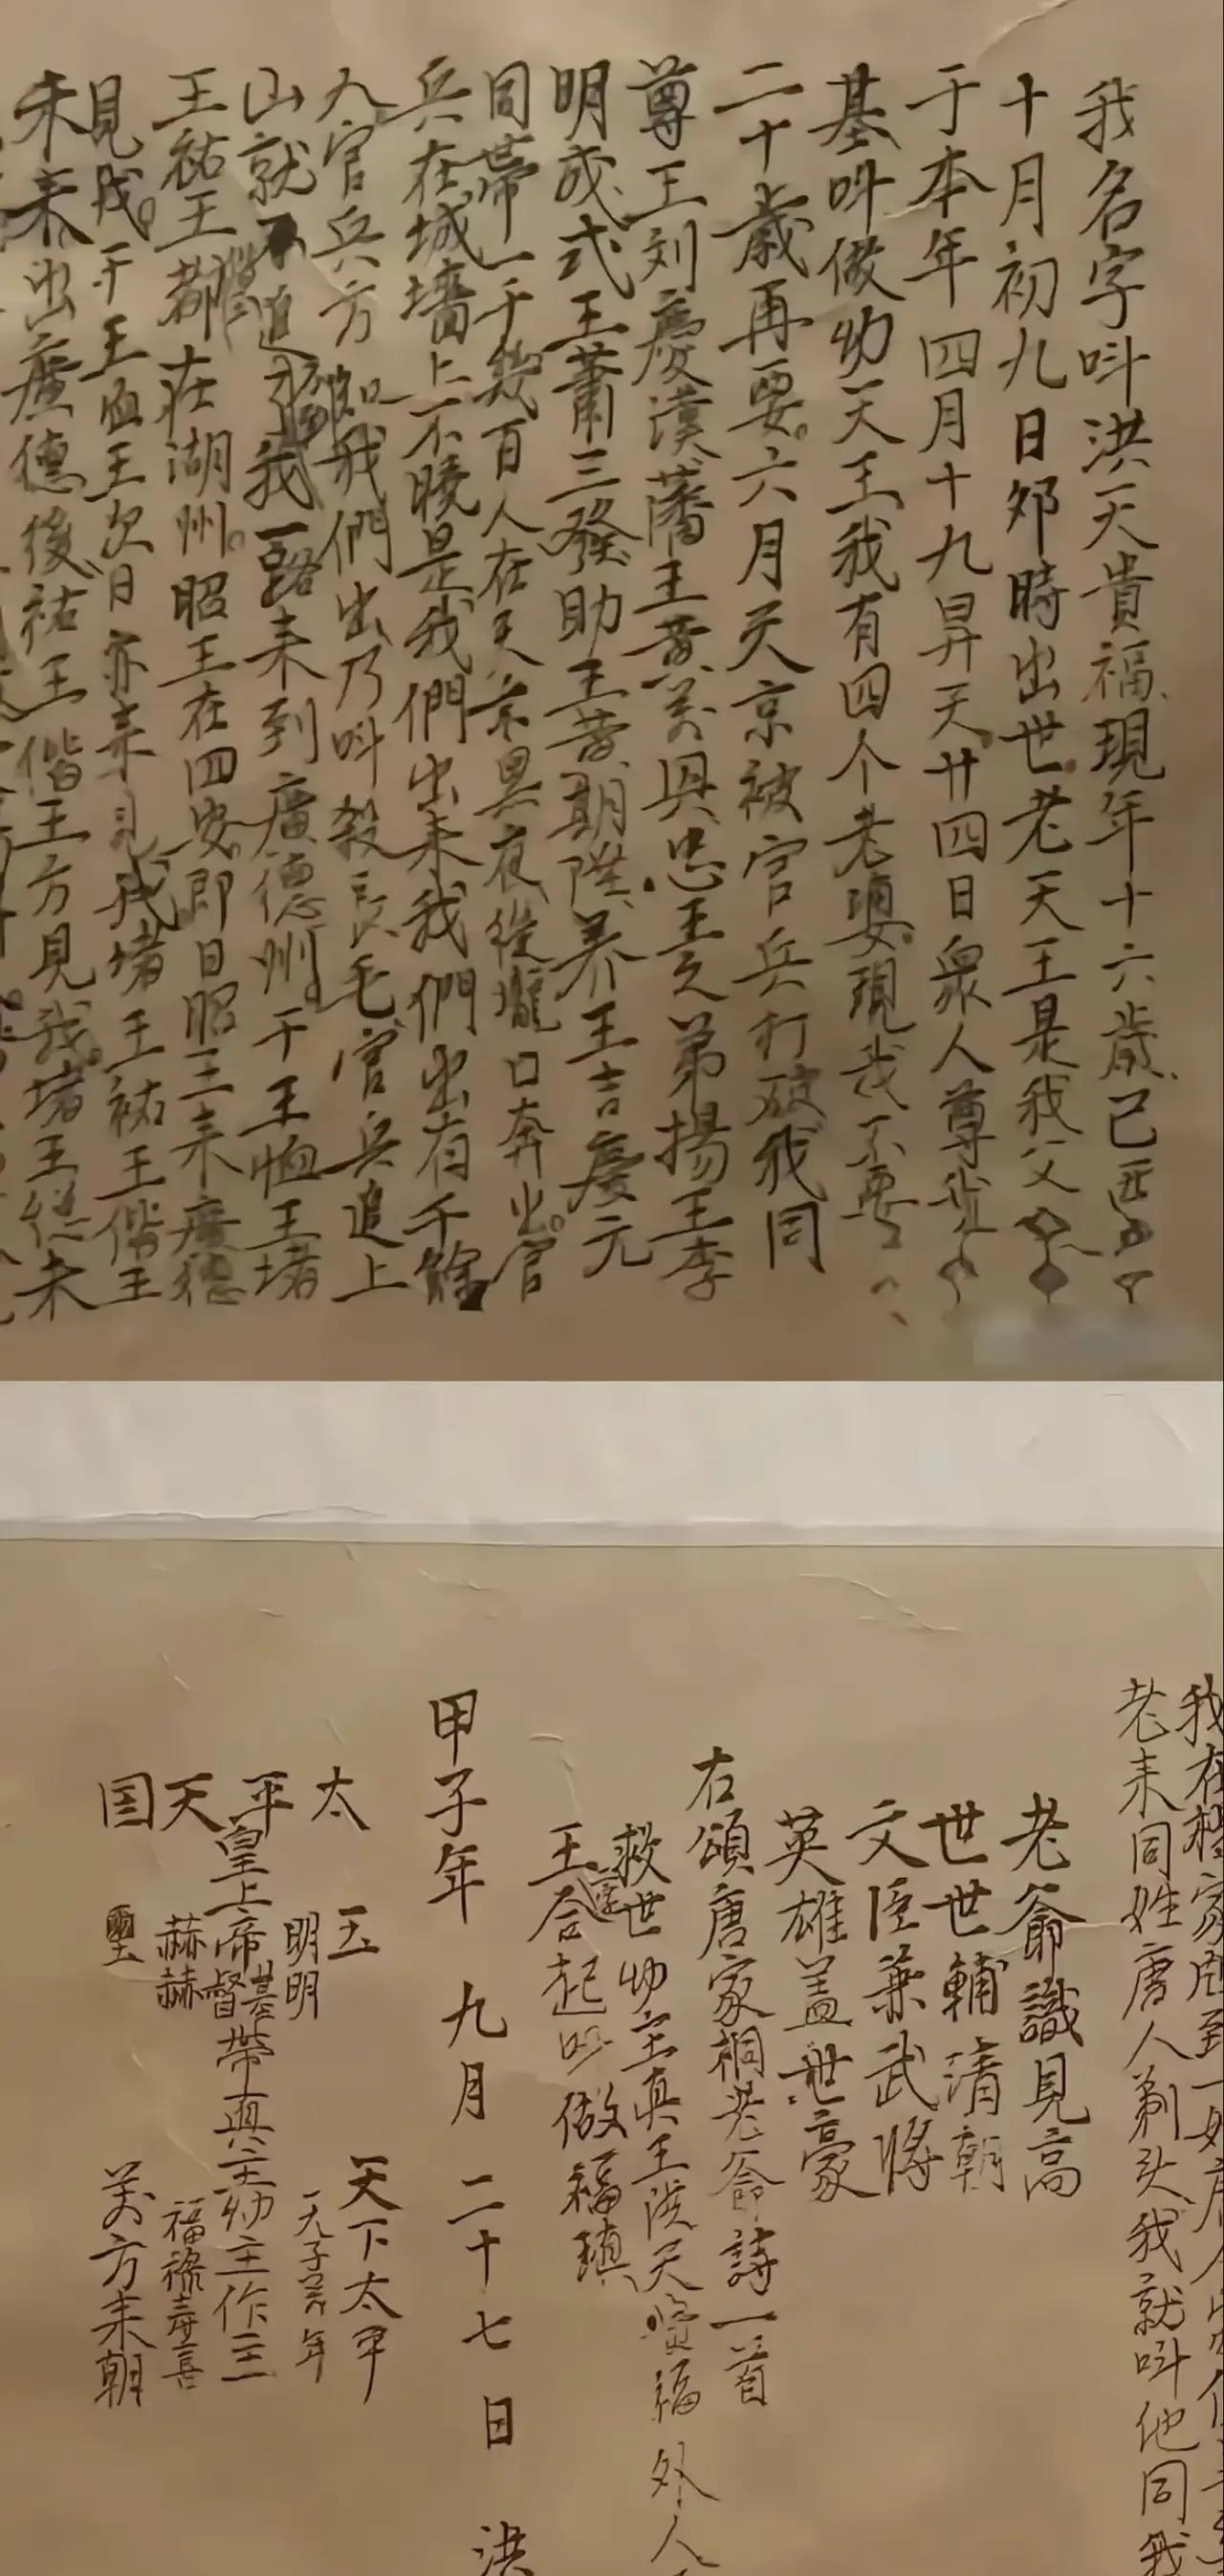 我名字呌洪天貴福現年十六歲己酉
十月初九日夘時出世老天王是我父
于本年四月十九昇天廿四日衆人尊我
基呌做幼天王我有四个老婆現我不要
二十歲再要六月天京被官兵打破我同
尊王刘慶漢藩王黄萬興忠王之弟揚王李
明成式王蕭三發助王黄期陞养王吉慶元
同帶一千幾百人在天京黑夜從壠口奔出官
兵在城墻上不曉是我們出来我們出有千餘
人官兵方知我們出乃呌殺長毛官兵追上
山就不追我一路来到廣德州干王恤王堵
王祐王都在湖州昭王在四安即日昭王来廣德
見我干王恤王次日亦来見我堵王祐王偕王
未来出廣德後祐王偕王方見我堵王總未
我在
老来同姓唐人剃头我就呌他同我
老爺識見高
世世輔清朝
文臣兼武將
英雄蓋世豪
右頌唐家桐老爺詩一首
救世幼主真王洪天貴福外人
王合起吅做福瑱
甲子年 九月 二十七日 洪
太 玉 天下太平
明明
平 皇上帝基督帶真主幼主作主
天 赫赫 福祿壽喜
国 璽 萬方来朝